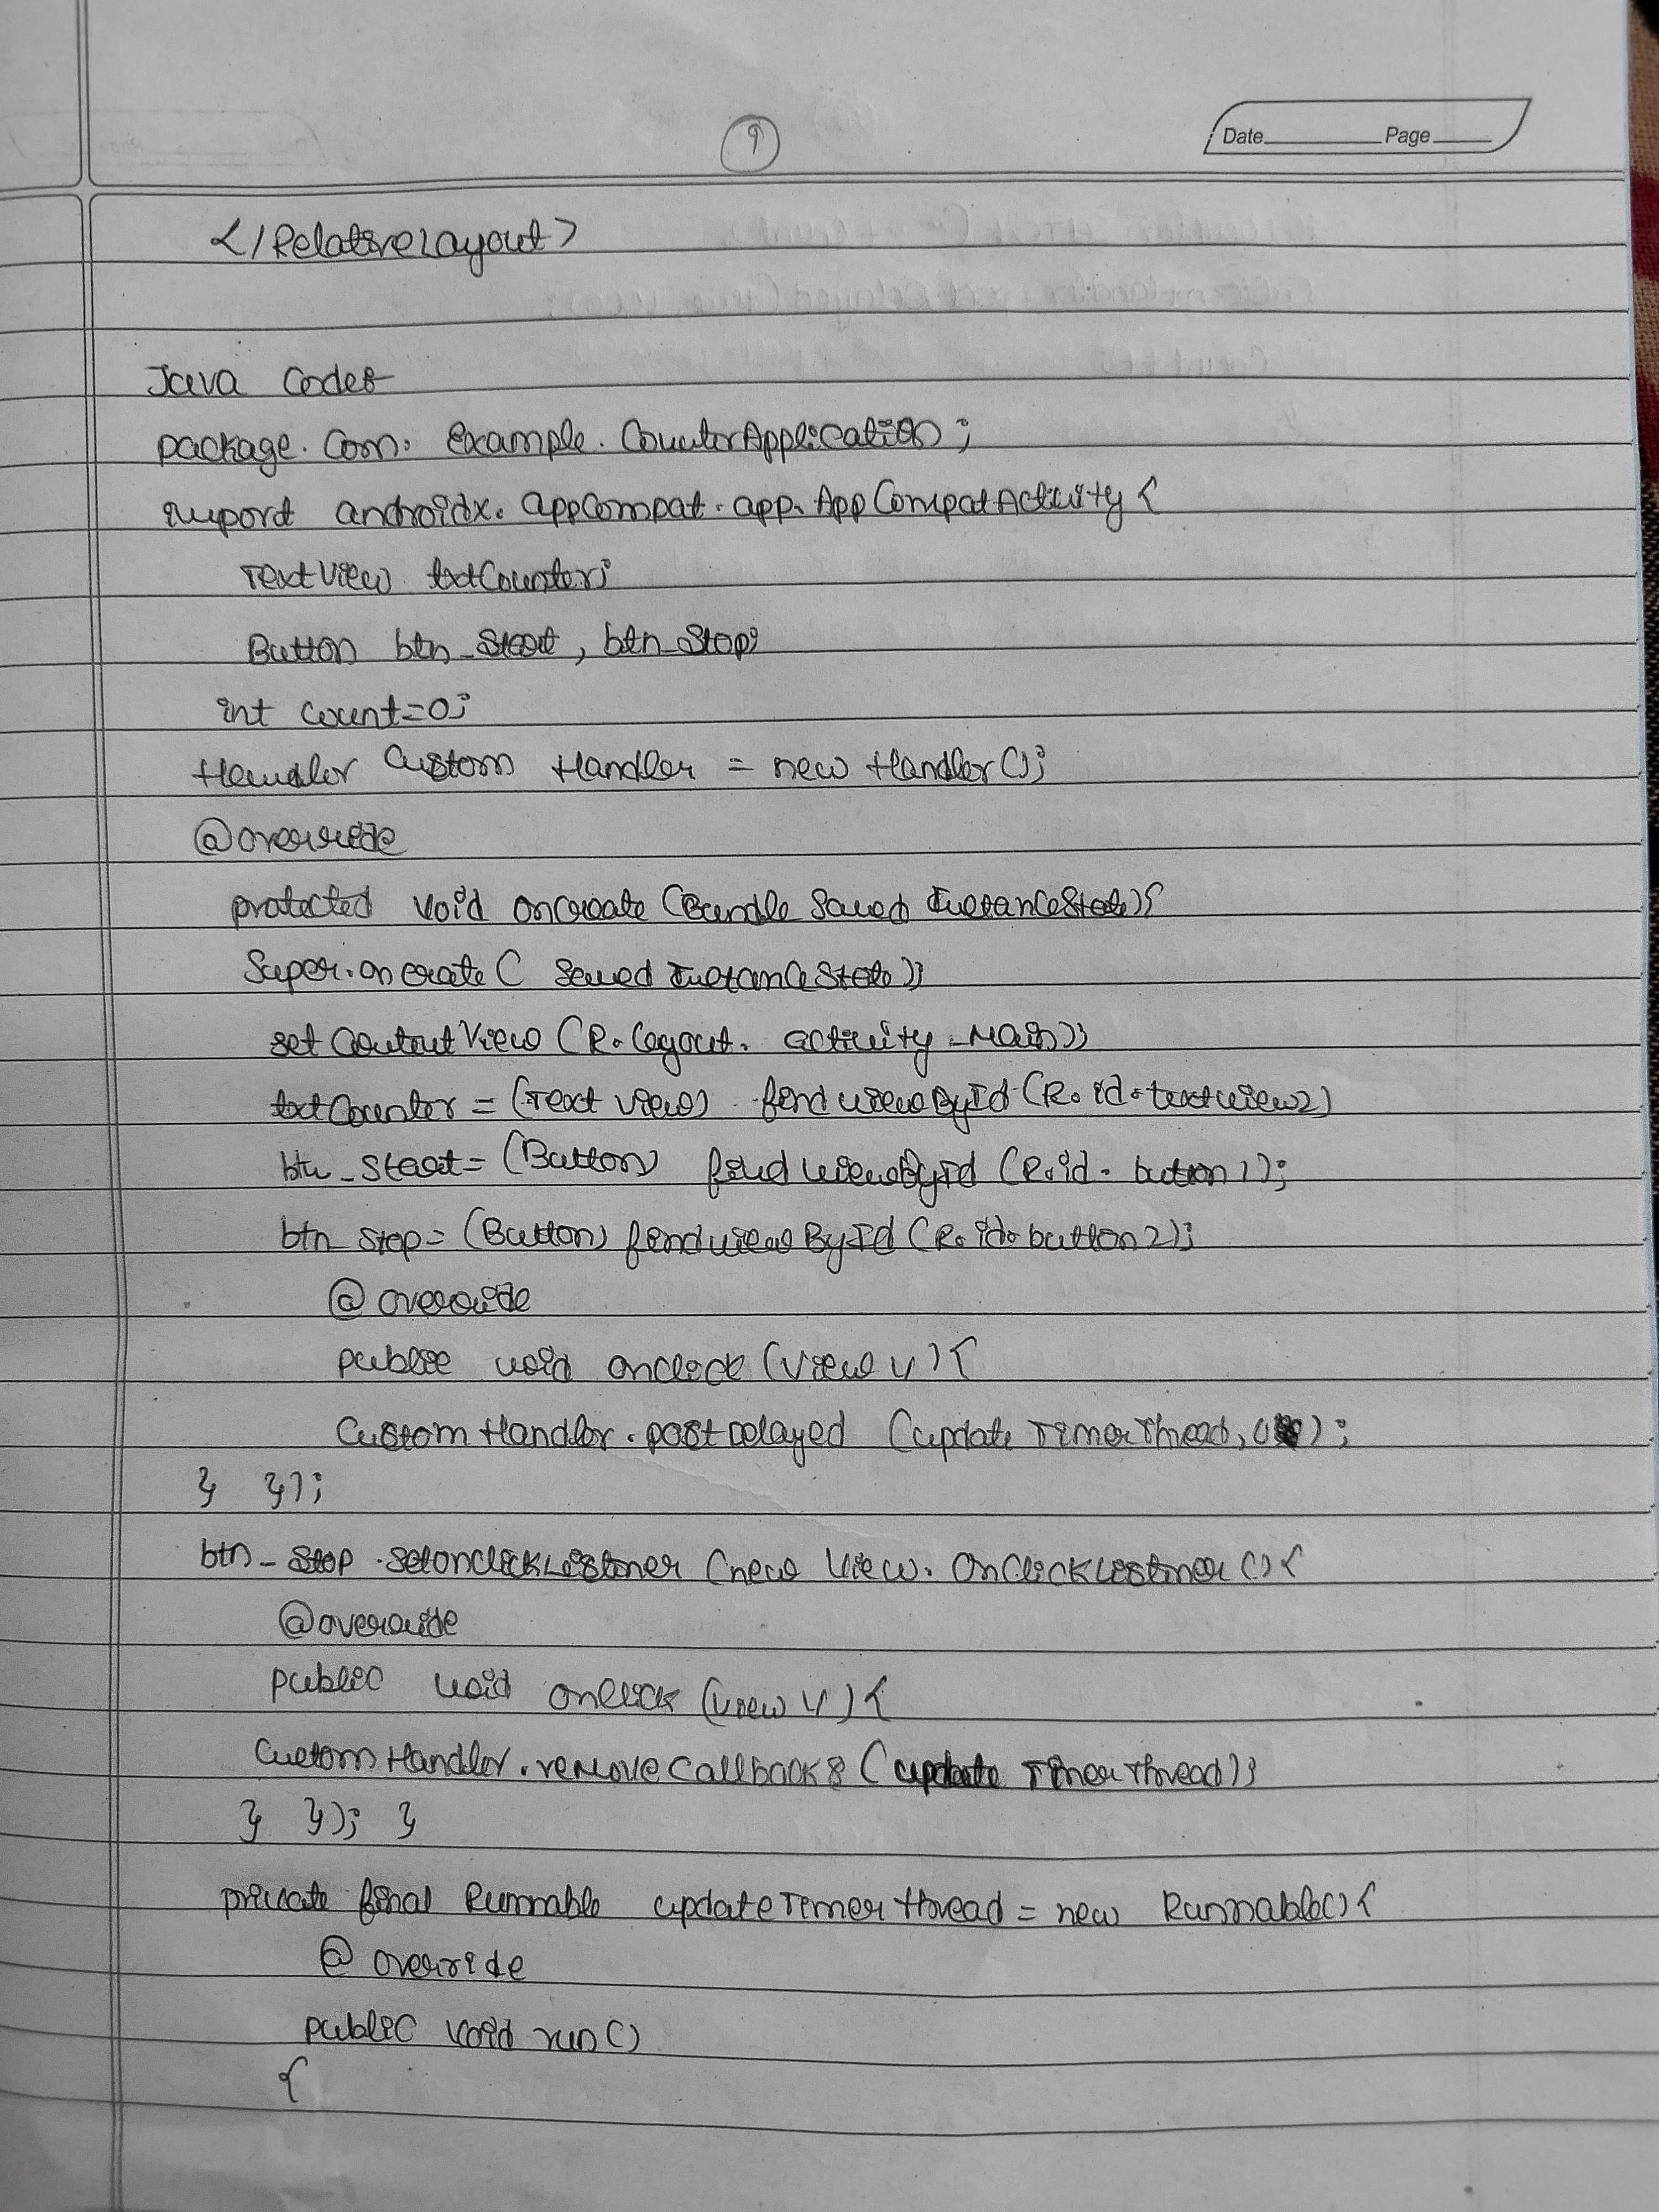 9
Date Page
</RelativeLayout>
Java Code:-
package. Com. Example. CounterApplication;
import androidx. appCompat. app. AppCompatActivity {
TextView txtCounter;
Button btn_Start, btn_Stop;
int Count=0;
Handler Custom Handler = new Handler();
@override
protected void onCreate (Bundle Saved InstanceState){
Super.onCreate ( Saved InstanceState);
set Content View (R. layout. activity_Main);
txtCounter = (Text View) findViewById (R. id. textview2)
btn_Start= (Button) findViewById (R.id. button1);
btn_Stop= (Button) findViewById (R. id. button2);
@ override
public void onclick (View v) {
Custom Handler. post Delayed (update Timer Thread, 0);
} });
btn_Stop .SetOnClickListener (new View. OnClickListener () {
@override
public void onClick (View v) {
Custom Handler. remove Callbacks (update Timer Thread);
} }); }
private final Runnable updateTimer thread = new Runnable() {
@ override
public void run ()
{